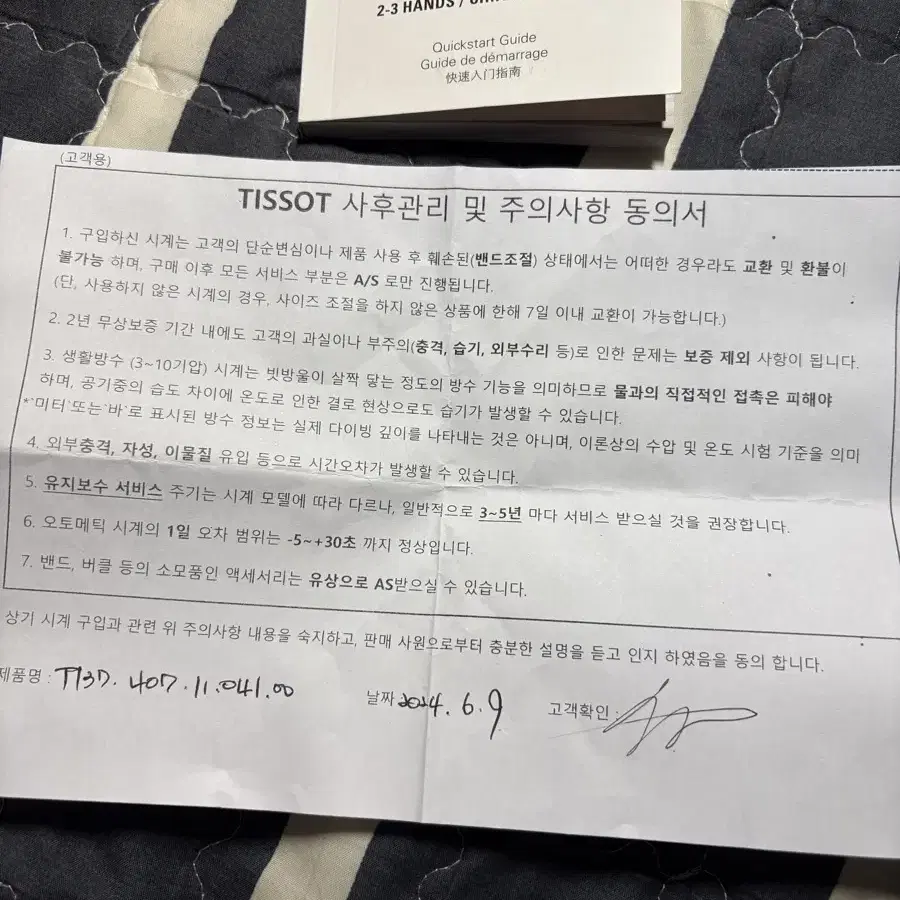 2-3 HANDS /
Quickstart Guide
Guide de démarrage
快速入门指南
(고객용)
TISSOT 사후관리 및 주의사항 동의서
1. 구입하신 시계는 고객의 단순변심이나 제품 사용 후 훼손된(밴드조절) 상태에서는 어떠한 경우라도 교환 및 환불이
불가능 하며, 구매 이후 모든 서비스 부분은 A/S 로만 진행됩니다.
(단, 사용하지 않은 시계의 경우, 사이즈 조절을 하지 않은 상품에 한해 7일 이내 교환이 가능합니다.)
2. 2년 무상보증 기간 내에도 고객의 과실이나 부주의(충격, 습기, 외부수리 등)로 인한 문제는 보증 제외 사항이 됩니다.
3. 생활방수 (3~10기압) 시계는 빗방울이 살짝 닿는 정도의 방수 기능을 의미하므로 물과의 직접적인 접촉은 피해야
하며, 공기중의 습도 차이에 온도로 인한 결로 현상으로도 습기가 발생할 수 있습니다.
*'미터'또는'바'로 표시된 방수 정보는 실제 다이빙 깊이를 나타내는 것은 아니며, 이론상의 수압 및 온도 시험 기준을 의미
4. 외부충격, 자성, 이물질 유입 등으로 시간오차가 발생할 수 있습니다.
5. 유지보수 서비스 주기는 시계 모델에 따라 다르나, 일반적으로 3~5년 마다 서비스 받으실 것을 권장합니다.
6. 오토메틱 시계의 1일 오차 범위는 -5~+30초 까지 정상입니다.
7. 밴드, 버클 등의 소모품인 액세서리는 유상으로 AS받으실 수 있습니다.
상기 시계 구입과 관련 위 주의사항 내용을 숙지하고, 판매 사원으로부터 충분한 설명을 듣고 인지 하였음을 동의 합니다.
제품명 : T137.407.11.041.00 날짜 2024.6.9 고객확인 :